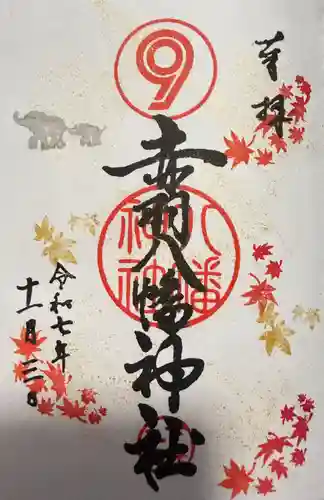 奉拝
9
赤羽八幡神社
八幡神社
令和七年
十一月二日